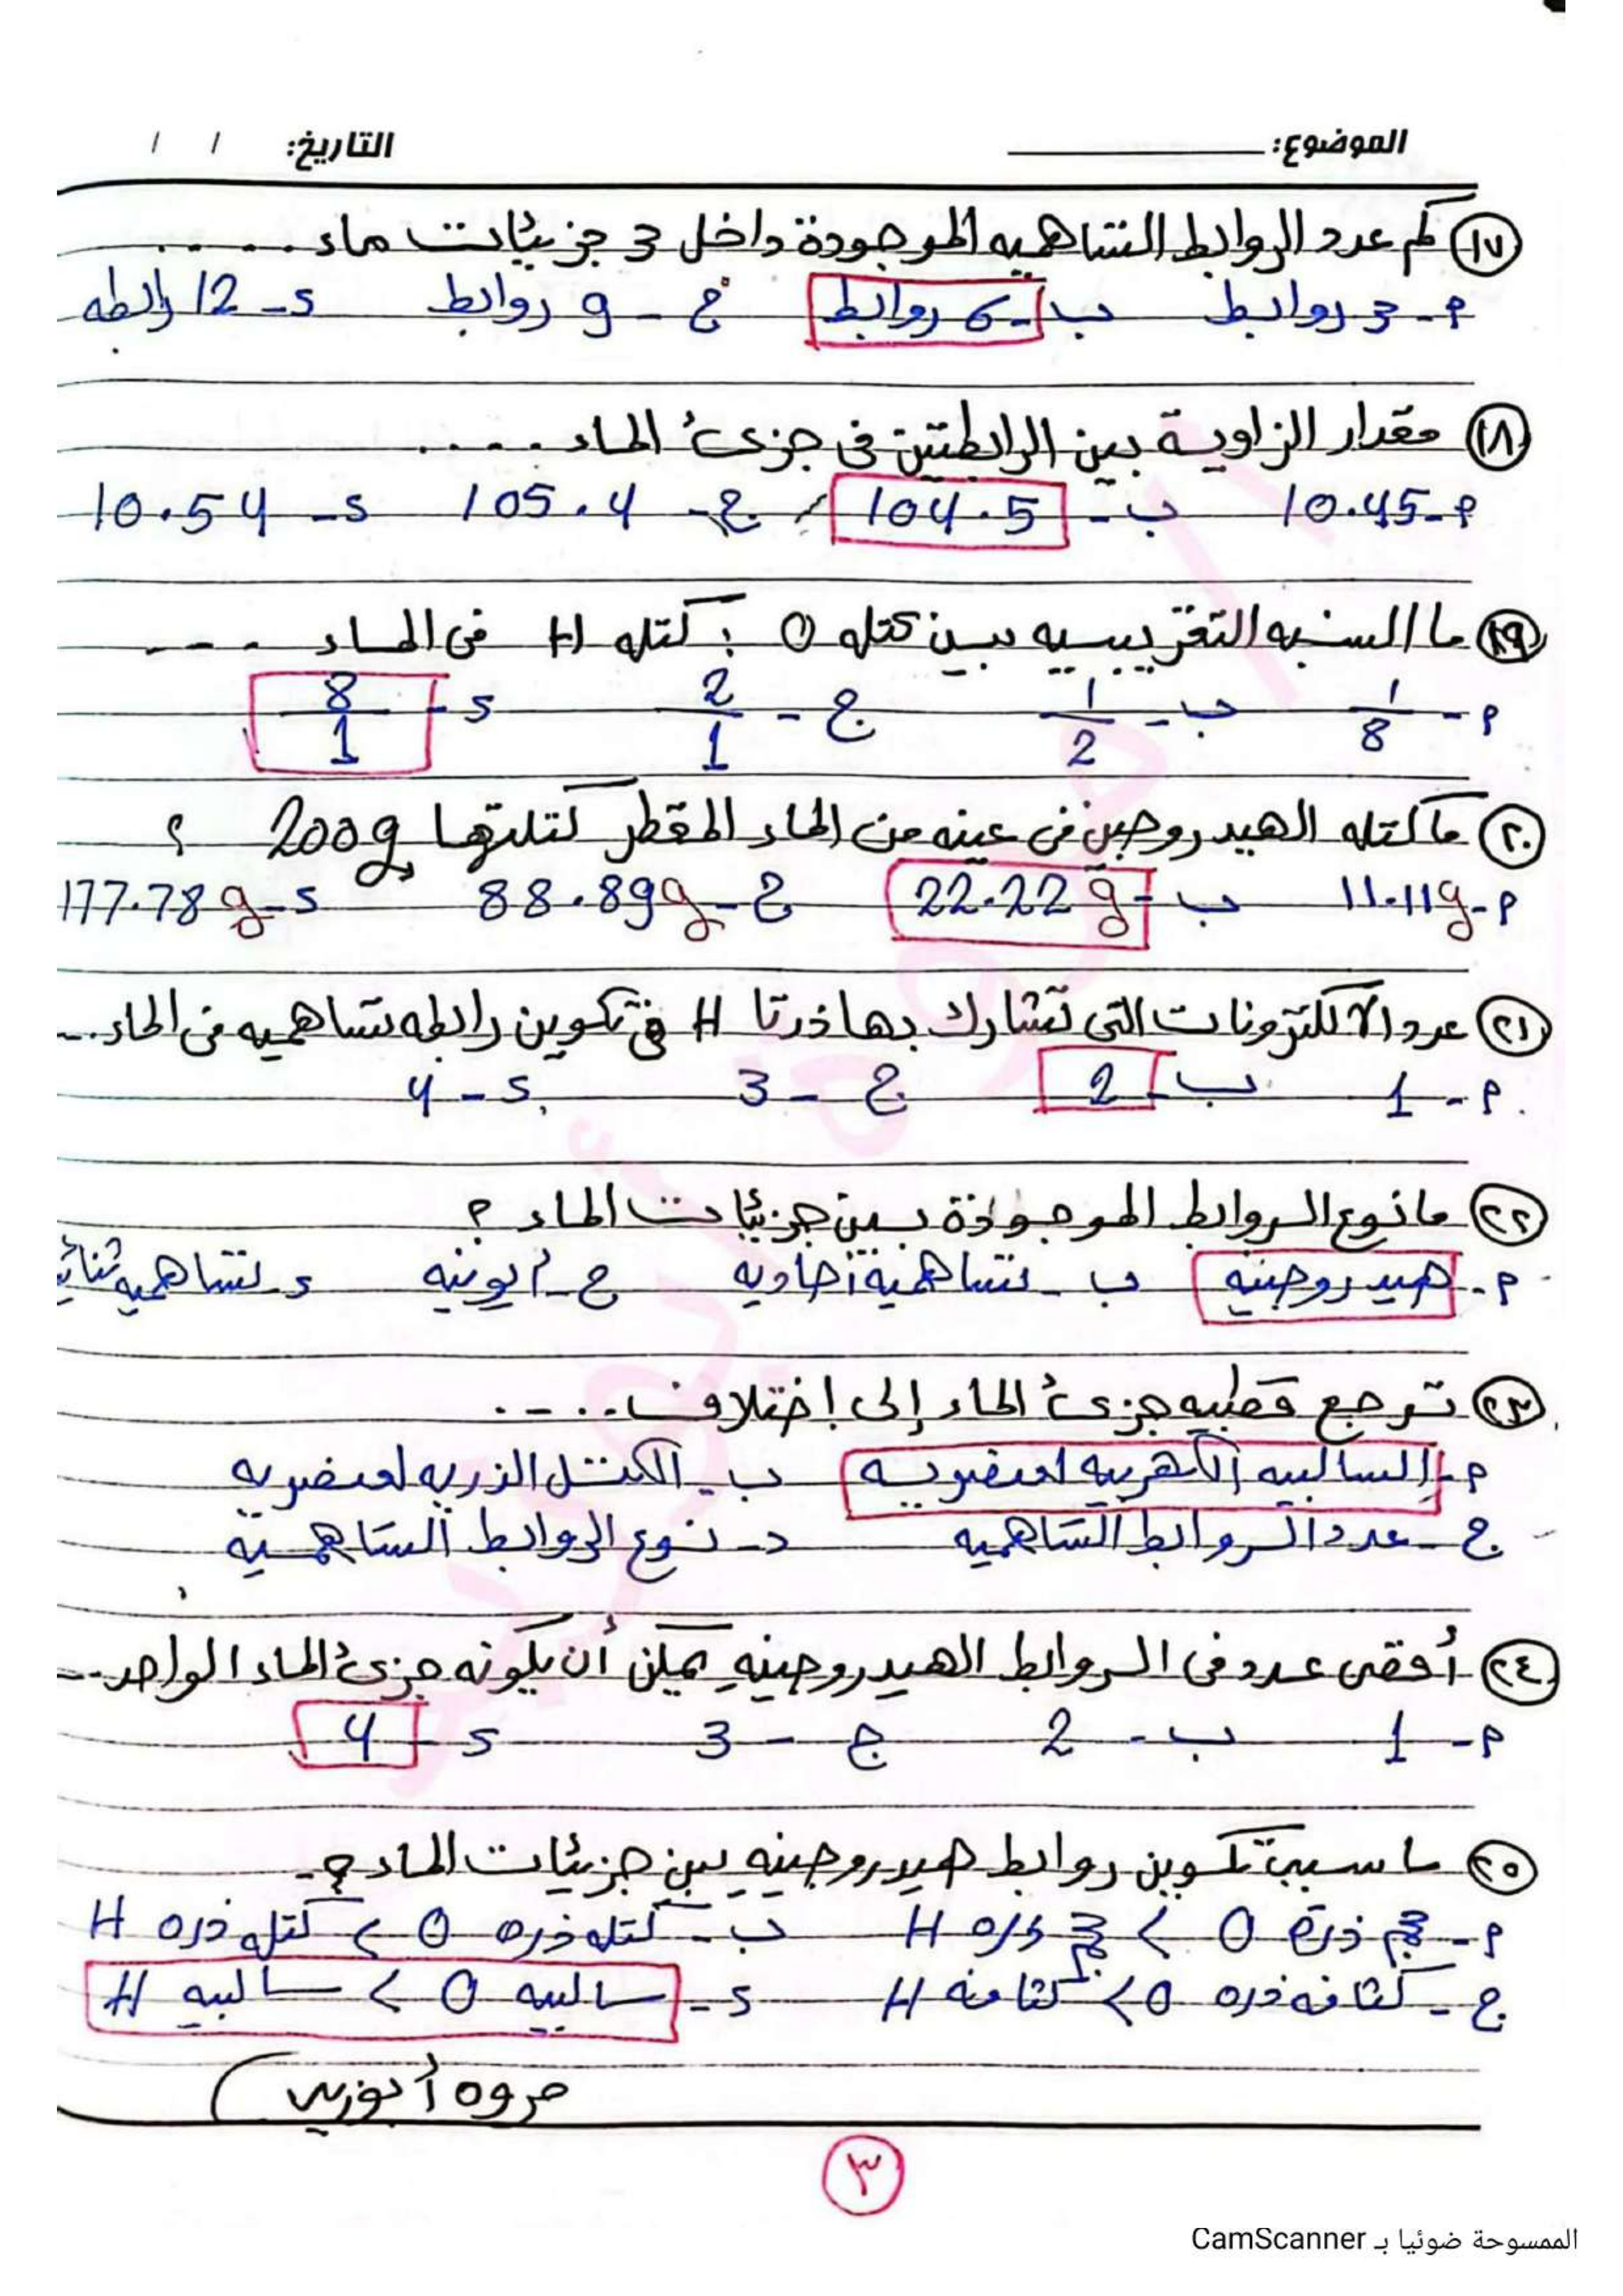 الموضوع: التاريخ: / /
١٧ كم عدد الروابط التساهميه الموجودة داخل 3 جزيئات ماء .....
أ- 3 روابط ب- 6 روابط ج- 9 روابط د- 12 رابطه
١٨ مقدار الزاوية بين الرابطتين فى جزئ الماء .....
أ- 10.45 ب- 104.5 ج- 105.4 د- 10.54
١٩ ما النسبه التقريبيه بين كتله O : كتله H فى الماء ....
أ- 1/8 ب- 1/2 ج- 2/1 د- 8/1
٢٠ ما كتله الهيدروجين فى عينه من الماء المقطر كتلتها 200g ؟
أ- 11.11g ب- 22.22g ج- 88.89g د- 177.78g
٢١ عدد الالكترونات التى تشارك بها ذرتا H فى تكوين رابطه تساهميه فى الماء...
أ- 1 ب- 2 ج- 3 د- 4
٢٢ ما نوع الروابط الموجودة بين جزيئات الماء ؟
أ- هيدروجينيه ب- تساهمية أحاديه ج- أيونيه د- تساهميه
٢٣ ترجع قطبيه جزئ الماء إلى إختلاف.....
أ- السالبيه الكهربيه لعنصريه ب- الكتل الذريه لعنصريه
ج- عدد الروابط التساهميه د- نوع الروابط التساهمية
٢٤ أقصى عدد فى الروابط الهيدروجينيه يمكن أن يكونه جزئ الماء الواحد...
أ- 1 ب- 2 ج- 3 د- 4
٢٥ ما سبب تكوين روابط هيدروجينيه بين جزيئات الماء ؟
أ- حجم ذرة O > حجم ذره H ب- كتله ذره O > كتله ذره H
ج- كثافه ذره O > كثافه H د- سالبيه O > سالبيه H
مروه أبوزيد
٣
الممسوحة ضوئيا بـ CamScanner